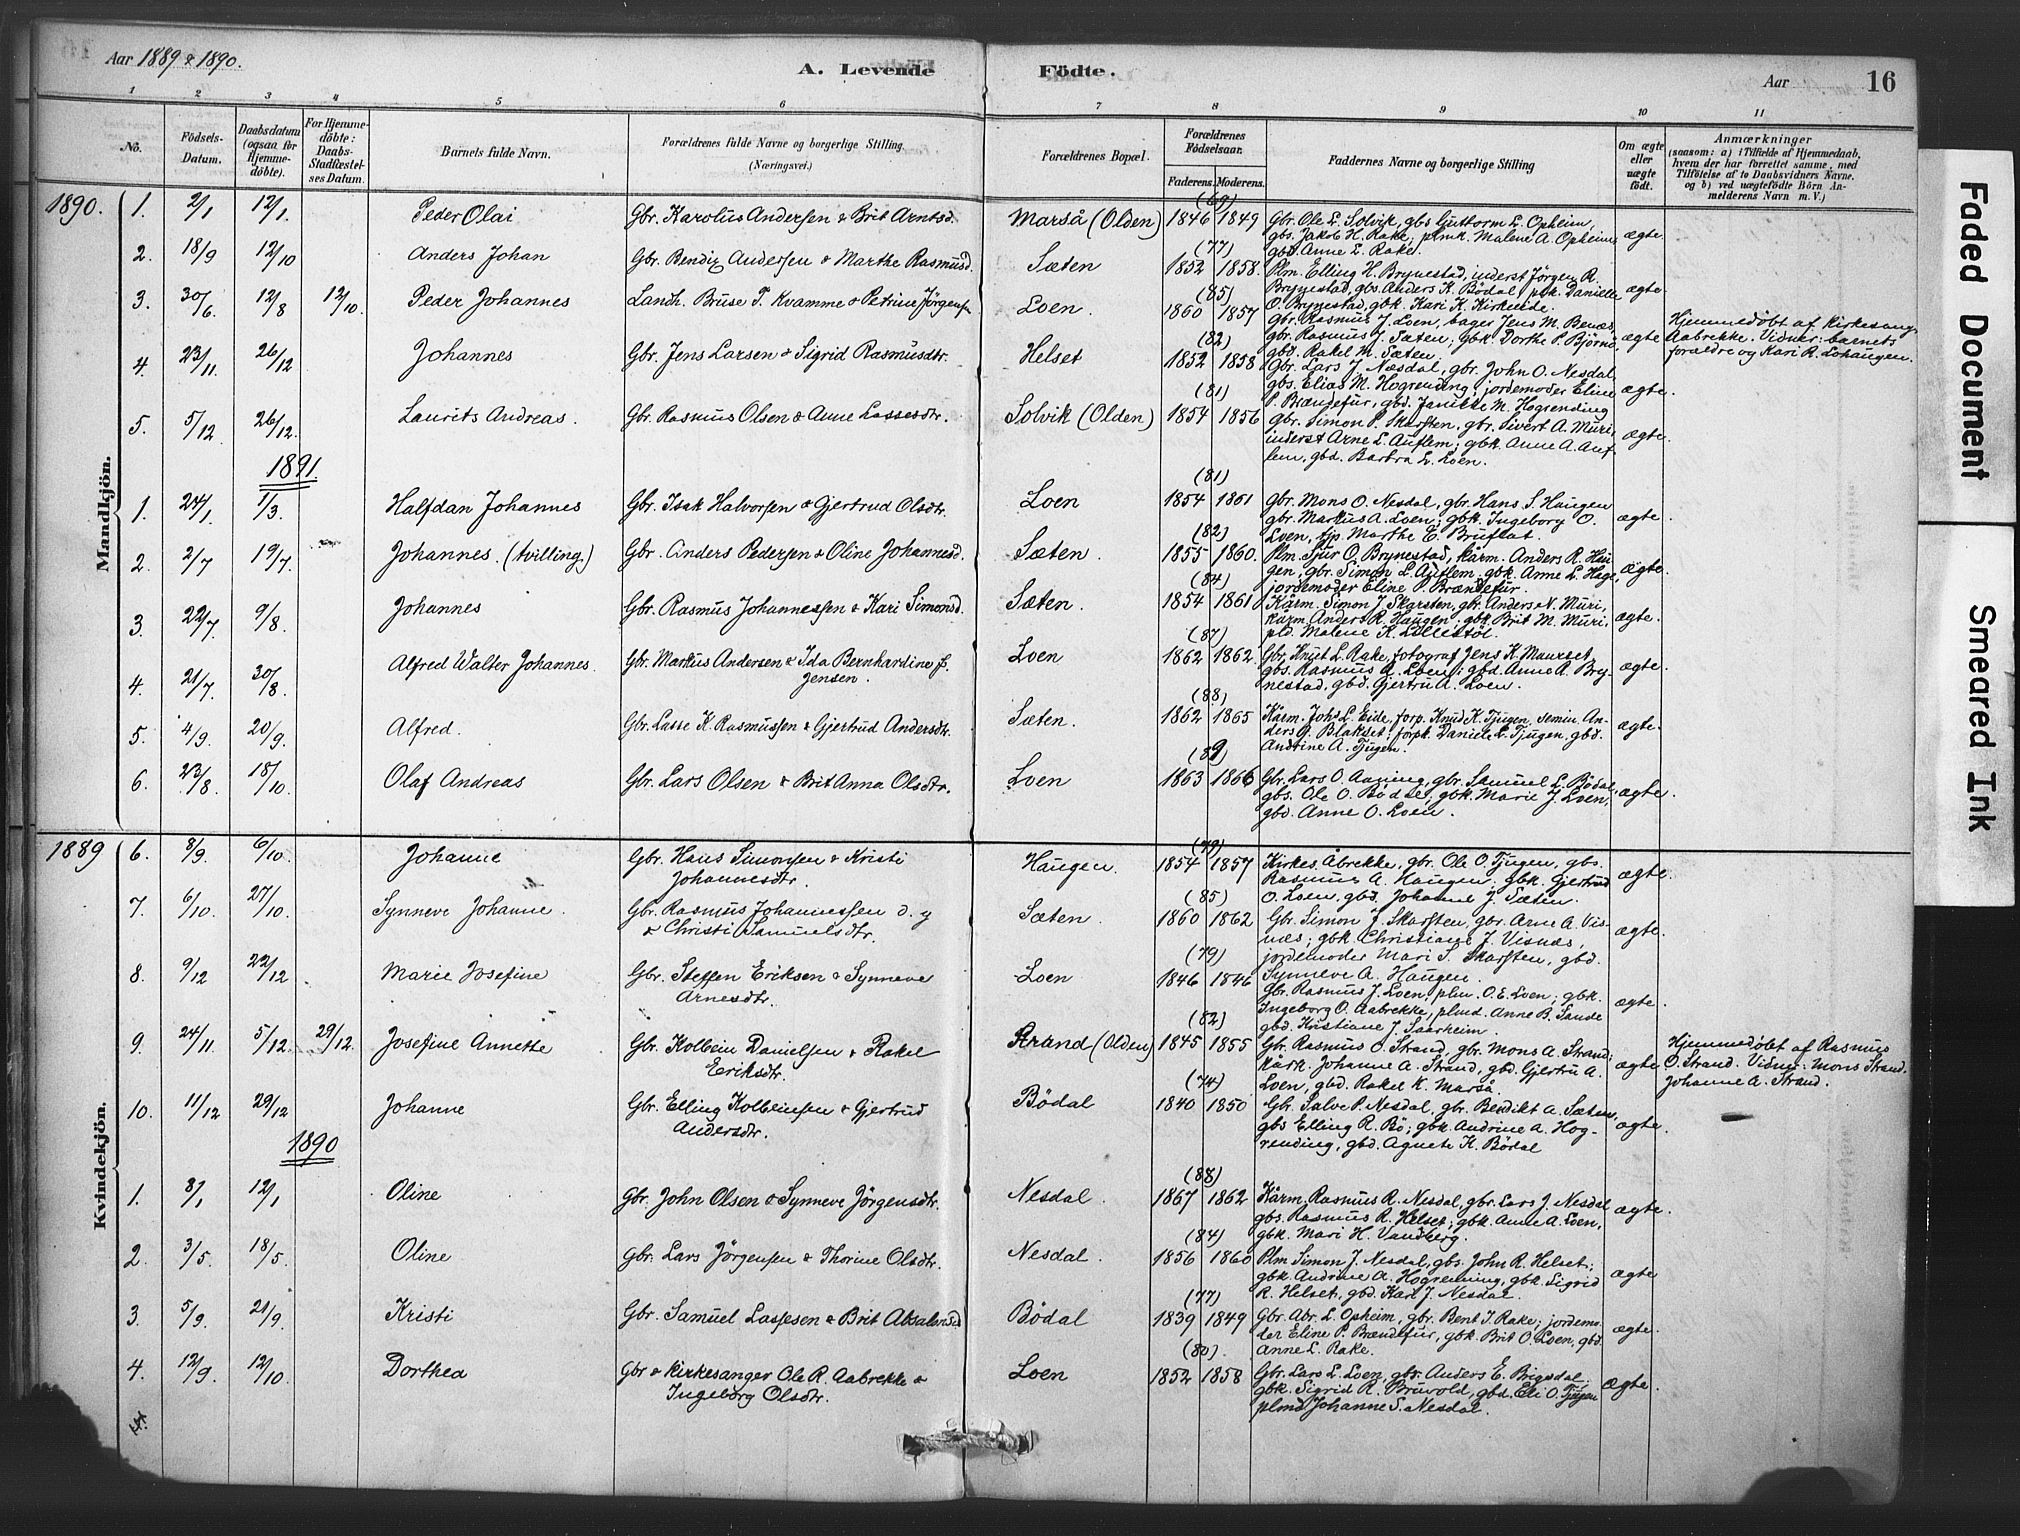 Aar 1889 & 1890.
A. Levende Födte.
Aar
16
1 2 3 4 5 6 7 8 9 10 11
No.
Födsels-Datum.
Daabsdatum (ogsaa for Hjemme-döbte).
For Hjemme-döbte: Daabs-Stadfæstel-ses Datum.
Barnets fulde Navn.
Forældrenes fulde Navne og borgerlige Stilling (Næringsvei.)
Forældrenes Bopæl.
Forældrenes Födselsaar.
Faderens. Moderens.
Faddernes Navne og borgerlige Stilling
Om ægte eller uægte födt.
Anmærkninger
(saasom: a) i Tilfælde af Hjemmedaab, hvem der har forrettet samme, med Tilföielse af to Daabsvidners Navne, og b) ved uægtefödte Börn An-melderens Navn m. V.)
Mandkjön.
1890. 1. 2/1 12/1. Peder Olai Gbr. Karolus Andersen & Brit Arntsd. Marså (Olden) (69) 1846 1849 Gbr. Ole L. Solvik, gbs Guttorm L. Opheim,
gbs. Jakob H. Rake; plmk. Malene A. Opheim, ægte.
gbd Anne L. Rake.
2. 18/9 12/10 Anders Johan Gbr. Bendix Andersen & Marthe Rasmusd. Sæten (77) 1852 1858. Plm. Elling H. Brynestad, inderst Jørgen R.
Brynestad, gbs. Anders K. Bödal, pbk. Danielle ægte.
O. Brynestad, gbk. Kari K. Kirkeide.
3. 30/6 12/8 12/10. Peder Johannes Landh. Buse T. Kvamme & Petrine Jørgens Loen. (85) 1860 1857 gbr. Rasmus J. Loen, bager Jens M. Benæs,
gbr. Rasmus J. Sæten; gbk Dorthe P. Bjørnø, ægte
gbd. Rakel M. Sæten.
Hjemmedøbt af kirkesang.
Aabrekke. Vidner: barnets
forældre og Kari R. Lohaugen.
4. 23/11. 26/12 Johannes Gbr. Jens Larsen & Sigrid Rasmusdtr. Helset (82) 1852 1858 Gbr. Lars J. Næsdal, gbr. John O. Nesdal,
gbs. Elias M. Hogrending; jordemoder Eline ægte.
P. Brændefur, gbd. Janikke M. Hogrending
5. 5/12 26/12. Laurits Andreas. Gbr. Rasmus Olsen & Anne Lassesdtr. Solvik (Olden) (81) 1854 1856 gbr. Simon P. Skarsten, gbr. Sivert A. Muri,
inderst Arne L. Auflem; gbk. Anne A. Auf- ægte.
lem, gbd. Barbra L. Loen.
1891
1. 24/1. 1/3. Halfdan Johannes Gbr. Isak Halvorsen & Gjertrud Olsdtr. Loen (81) 1854 1861 Gbr. Mons O. Nesdal, gbr. Hans S. Haugen
gbr. Markus A. Loen; gbk. Ingeborg O. ægte.
Loen, tjp. Marthe E. Bruflat.
2. 2/7 19/7. Johannes. (tvilling.) Gbr. Anders Pedersen & Oline Johannesd. Sæten. (82) 1855 1860. Plm. Sjur O. Brynestad, kårm. Anders R. Hau-
gen, gbr. Simon L. Auflem, gbk. Anne L. Hage, ægte.
jordemoder Eline P. Brændefur.
3. 22/7. 9/8. Johannes Gbr. Rasmus Johannessen & Kari Simonsd. Sæten. (84) 1854 1861 Kårm. Simon J. Skarsten, gbr. Anders N. Muri,
kårm. Anders R. Haugen; gbk. Brit M. Muri, ægte.
pld. Malene K. Lillestöl.
4. 21/7. 30/8. Alfred Walter Johannes. Gbr. Markus Andersen & Ida Bernhardine f. Jensen. Loen (87) 1862 1862. Gbr. Knut L. Rake, fotograf Jens K. Maurset,
gbs. Rasmus A. Loen; gbd. Anne A. Bry- ægte.
nestad, gbd. Gjertru A. Loen.
5. 4/9. 20/9. Alfred. Gbr. Lasse K. Rasmussen & Gjertrud Andersdtr. Sæten. (88) 1862 1865 Kårm. Johs L. Eide, forp. Knud K. Tjugen, semin. An-
ders J. Blakset; forpk. Daniele L. Tjugen, gbd. ægte.
Andrine A. Tjugen.
6. 23/8. 18/10. Olaf Andreas Gbr. Lars Olsen & Brit Anna Olsdtr. Loen (89) 1863 1866 Gbr. Lars O. Aaning, gbr. Samuel L. Bödal,
gbs. Ole O. Bødal; gbk. Marie J. Loen, ægte.
gbd. Anne O. Loen.
Kvindekjön.
1889 6. 8/9. 6/10. Johanne Gbr. Hans Simonsen & Kristi Johannesdtr. Haugen. (79) 1854 1857 Kirkes. Åbrekke, gbr. Ole O. Tjugen, gbs.
Rasmus A. Haugen. gbk. Gjertrud ægte.
O. Loen, gbd. Johanne J. Sæten.
7. 6/10. 27/10. Synneve Johanne. Gbr. Rasmus Johannessen d. y & Christi Samuelsdtr. Sæten. (85) 1860 1862 Gbr. Simon J. Skarsten, gbr. Arne A. Vis-
næs; gbk. Christiane J. Visnæs, ægte.
jordemoder Mari S. Skarsten, gbd.
Synneve A. Haugen.
8. 9/12 22/12 Marie Josefine Gbr. Steffen Eriksen & Synneve Arnesdtr. Loen (79) 1846 1846 Gbr. Rasmus J. Loen, plm. O. E. Loen; gbk.
Ingeborg O. Aabrekke, plmd. Anne B. Sande ægte.
gbd. Kristiane J. Saarheim.
9. 24/11. 5/12. 29/12. Josefine Annette Gbr. Kolbein Danielsen & Rakel Eriksdtr. Strand (Olden) (82) 1845 1855 Gbr. Rasmus O. Strand, gbr. Mons A. Strand;
kårk. Johanne A. Strand, gbd. Gjertru A. ægte
Loen, gbd. Rakel K. Marså
Hjemmedøbt af Rasmus
O. Strand. Vidner: Mons Strand,
Johanne A. Strand.
10. 11/12 29/12 Johanne Gbr. Elling Kolbeinsen & Gjertrud Andersdtr. Bödal (74) 1840 1850 Gbr. Salve P. Nesdal, gbr. Bendikt A. Sæten,
gbs Elling R. Bö; gbk. Andrine A. Hog- ægte.
rending, gbd. Agnete K. Bödal
1890
1. 8/1 12/1 Oline Gbr. John Olsen & Synneve Jörgensdtr. Nesdal. (88) 1867 1862 Kårm. Rasmus R. Nesdal, gbr. Lars J. Nesdal
gbs. Rasmus R. Helset; gbk. Anne A. Loen, ægte.
gbk. Mari H. Vandberg.
2. 3/5. 18/5. Oline Gbr. Lars Jörgensen & Thorine Olsdtr. Nesdal. (84) 1856 1860 Plm Simon J. Nesdal, gbs. John R. Helset;
gbk. Andrine A. Hogrenning, gbk. Sigrid ægte
R. Helset, gbd. Kari J. Nesdal.
3. 5/9. 21/9. Kristi Gbr. Samuel Lassesen & Brit Absalonsd Bödal (77) 1839 1849 Gbr. Abr. L. Opheim, gbr. Bent J. Rake; jordemo-
der Eline P. Brændefur, gbk. Brit O. Loen, gbd. ægte.
Anne L. Rake.
4. 12/9. 12/10. Dorthea Gbr & kirkesanger Ole R. Aabrekke & Ingeborg Olsdtr. Loen (80) 1852 1858 Gbr. Lars L. Loen, gbr. Anders E. Brigsdal;
gbk. Sigrid R. Bruvold, gbd. Eli O. Tjugen ægte.
plmd. Johanne S. Nesdal.
Faded Document
Smeared Ink